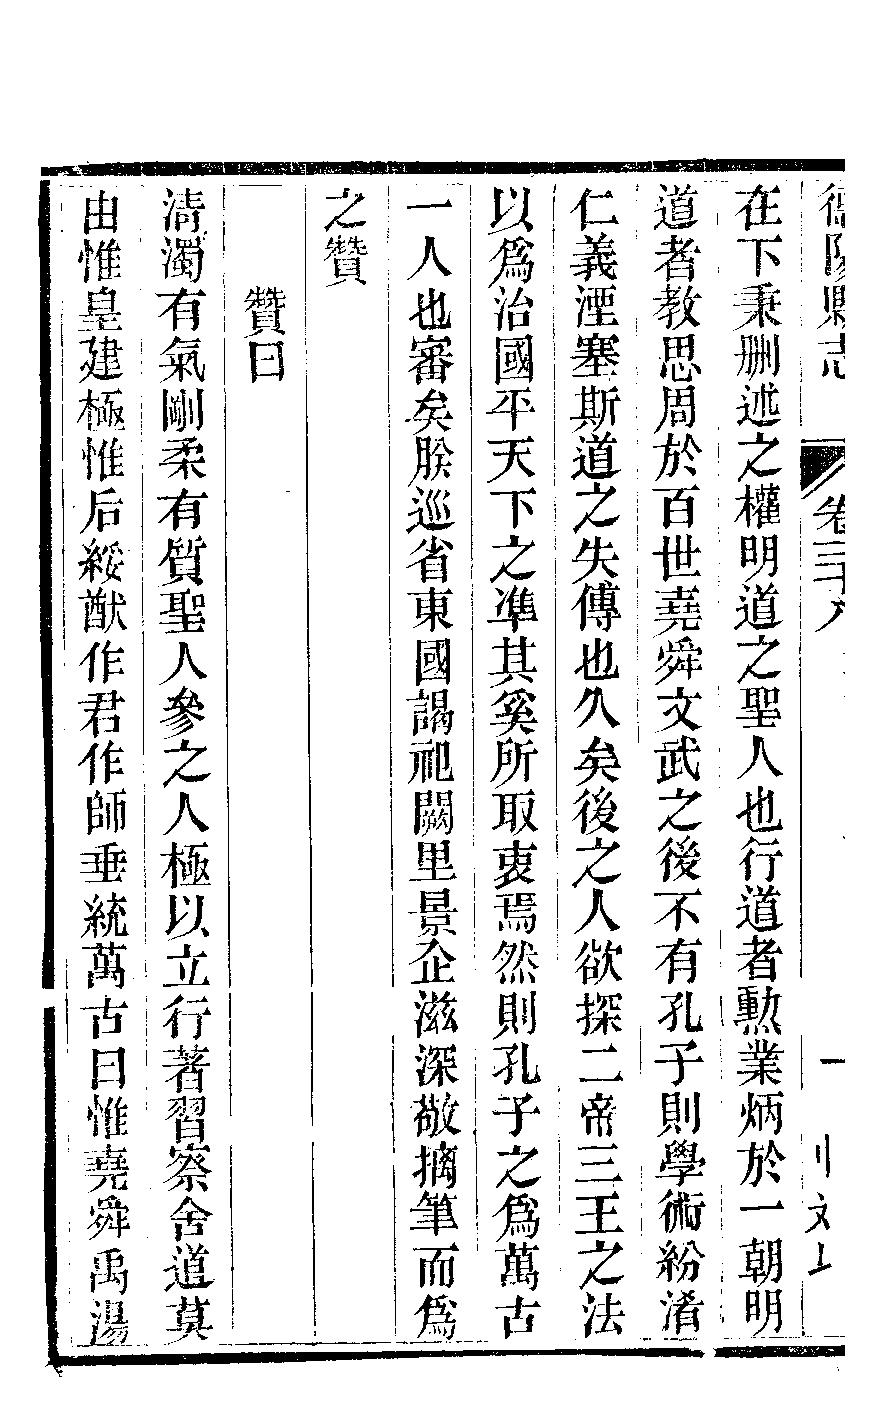 德陽縣志
卷三十八
在下秉刪述之權明道之聖人也行道者勲業炳於一朝明
道者教思周於百世堯舜文武之後不有孔子則學術紛淆
仁義湮塞斯道之失傳也久矣後之人欲探二帝三王之法
以爲治國平天下之凖其奚所取衷焉然則孔子之爲萬古
一人也審矣朕巡省東國謁祀闕里景企滋深敬摛筆而爲
之贊
贊曰
清濁有氣剛柔有質聖人參之人極以立行著習察舍道莫
由惟皇建極惟后綏猷作君作師垂統萬古曰惟堯舜禹湯